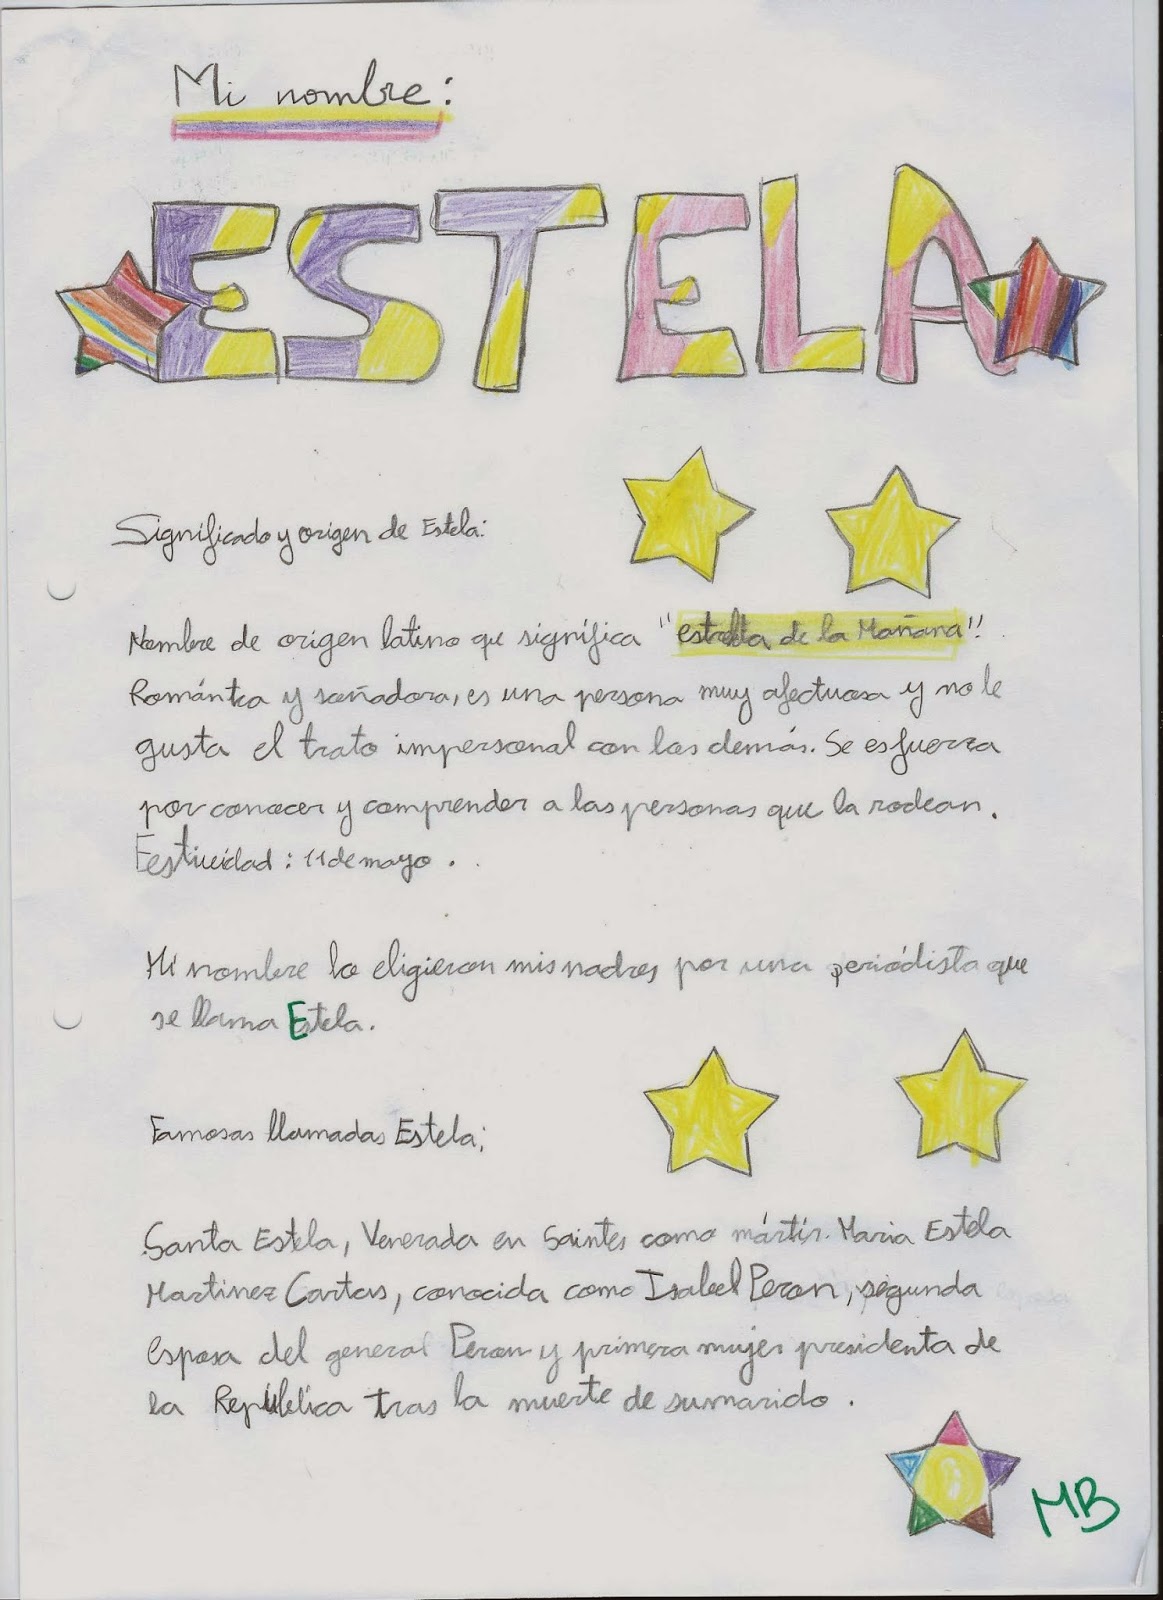 Mi nombre:
ESTELA
Significado y origen de Estela:
Nombre de origen latino que significa "estrella de la Mañana".
Romántica y soñadora, es una persona muy afectuosa y no le
gusta el trato impersonal con los demás. Se esfuerza
por conocer y comprender a las personas que la rodean.
Festividad: 11 de mayo.
Mi nombre lo eligieron mis padres por una periódista que
se llama Estela.
Famosas llamadas Estela:
Santa Estela, Venerada en Saintes como mártir. Maria Estela
Martinez Cartas, conocida como Isabel Peron, segunda
esposa del general Peron y primera mujer presidenta de
la República tras la muerte de su marido.
MB